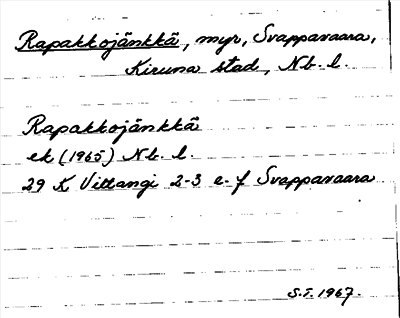 Rapakkojänkkä, myr, Svappavaara,
Kiruna stad, Nb. l.
Rapakkojänkkä
ek (1965) Nb. l.
29 K Vittangi 2-3 e-f Svappavaara
S.I. 1967.